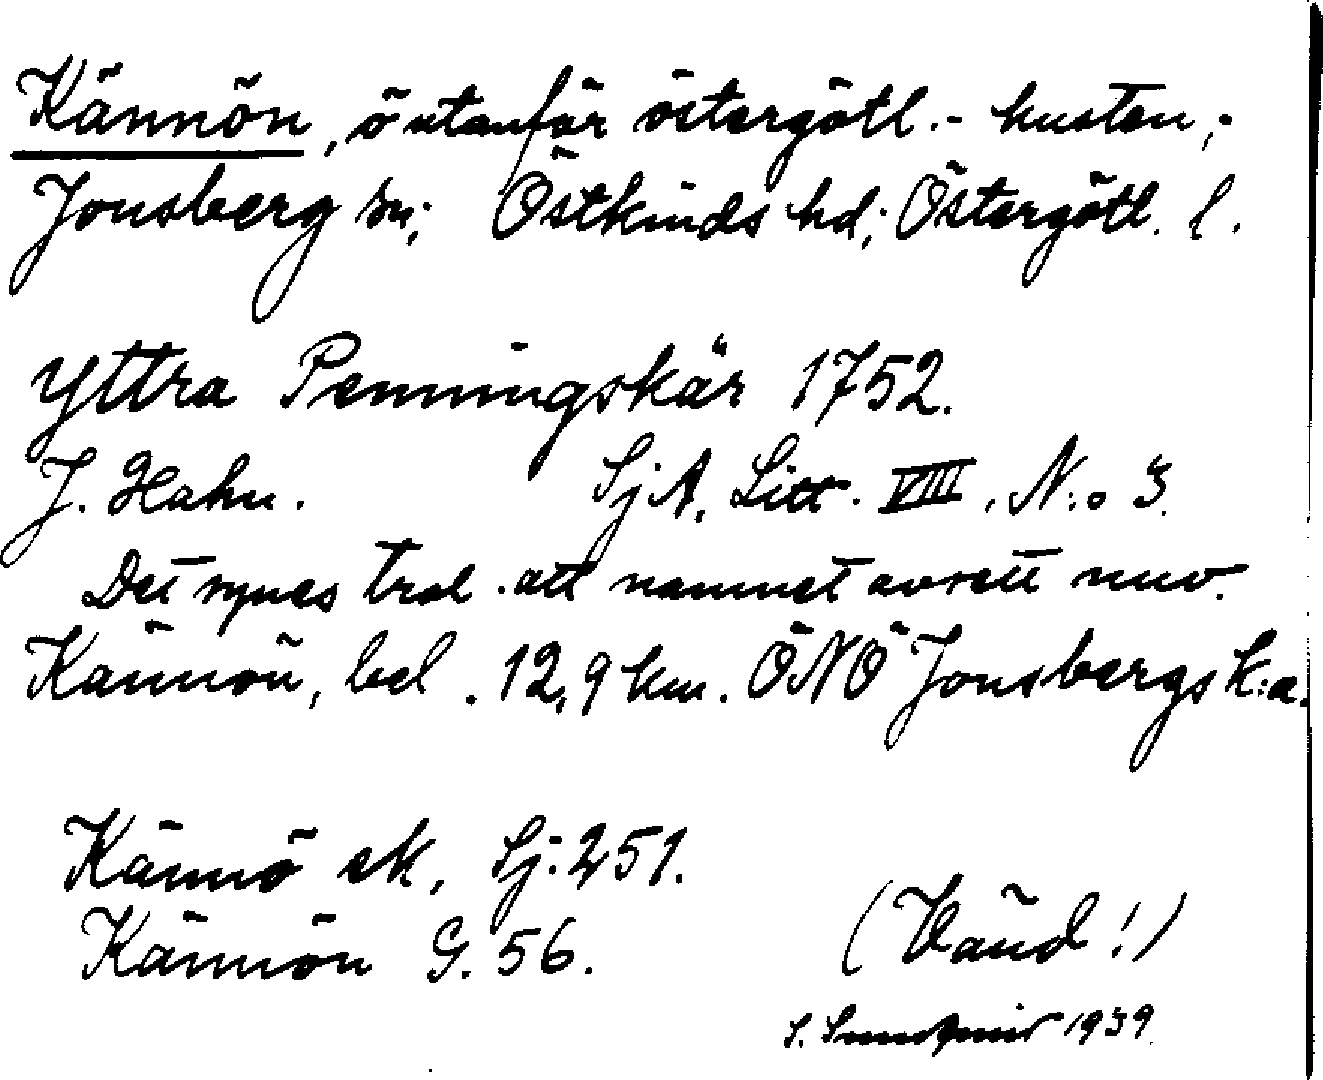 Kännön, ö utanför östergötl.- kusten,-
Jonsberg sn; Östkinds hd; Östergötl. l.
Yttra Penningskär 1752.
J. Hahn. SjA, Litt. VIII, N:o 3.
Det synes trol. att namnet avsett nuv.
Kännön, bel. 12,9 km. ÖNÖ Jonsbergs k:a.
Kännö ek, Sj. 251.
Kännön G. 56.
(Vänd!)
S. Sundqvist 1939